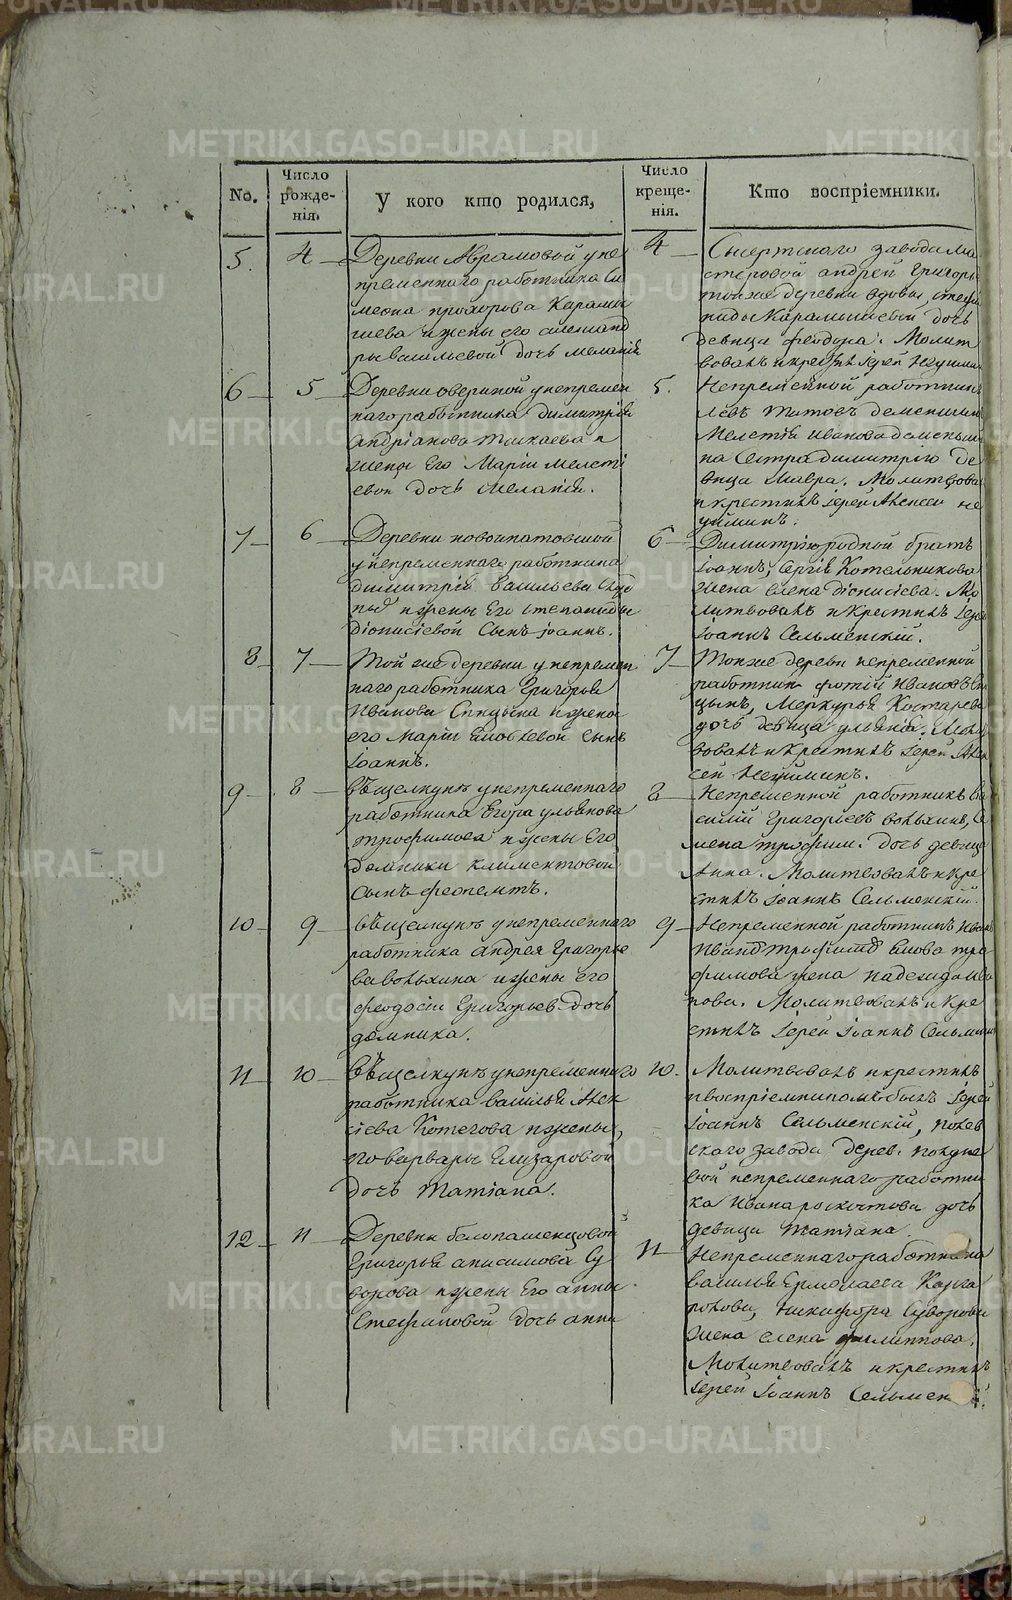 No.
Число рожде-нія.
У кого кто родился,
Число креще-нія.
Кто воспріемники.
5.
4
Деревни Аврамовой у не
пременнаго работника Си
меона прохорова Карамы
шева и жены его александ
ры васильевой дочь меланія
4
Сысертскаго завода ма
стеровой андрей Григорь
тоя же деревни вдовы
Карамышевой дочь
девица феодора. Молит
вовалъ и крестилъ іерей
6
5
у непремен
наго работника димитрія
андріанова и
жены Его Маріи мелеті
евои дочь меланія.
5.
Непременной работник
левъ Титовъ
Мелетія иванова
на сестра димитрію де
вица мавра. Молитвова
и крестилъ іерей Алексеи не
уйминъ.
7
6
Деревни новоипатовшой
у непременнаго работника
димитрія васильева
и жены Его степаниды
діонисіевой Сынъ іоаннъ.
6
Димитрію родной братъ
іоаннъ, сергія Котельникова
жена елена діонисіева. Мо
литвовалъ и крестилъ іерей
іоаннъ Сельменскій.
8
7
Той же деревни у непремен
наго работника Григорья
Иванова Спицына и жены
его Маріи сынъ
іоаннъ.
7
Тоя же дерев непременной
работник фотій ивановъ Спи
цынъ, Меркурья Костарева
дочь девица ульянія. Молит
вовалъ и крестилъ іерей Алек
сей Неуйминъ.
9
8
въ щелкунъ у непременнаго
работника Егора ульянова
трофимова и жены Его
Домники климентовой
Сынъ феопемтъ.
8
Непременной работникъ ва
силій Григоріевъ волыхинъ,
трофим. дочь девица
Анна. Молитвовалъ и кре
стилъ іоаннъ Сельменскій.
10
9
въ щелкунъ у непременнаго
работника андрея Григорье
ва волыхина и жены его
феодосіи Григорьев дочь
домника.
9
Непременной работникъ Иван
трофимова жена надежда
Молитвовалъ и кре
стилъ іерей іоаннъ Сельмен
11
10
въ щелкунъ у непременнаго
работника василья Алек
сіева Котегова и жены
его варвары Елизаровой
дочь Татіана.
10.
Молитвовалъ и крестилъ
и воспріемникомъ былъ іерей
іоаннъ Сельменскій, полев
скаго завода дерев. полдне
вой непременнаго работни
ка ивана дочь
девица татіана
12
11
Деревни белопашенцовой
Григорья анисимова Су
ворова и жены Его анны
Стефановой дочь анна
11
Непременнаго работника
василья Ермолаева Карга
полова, никифора Суворова
жена елена филиппова.
Молитвовалъ и крестилъ
іерей іоаннъ Сельмен
METRIKI.GASO-URAL.RU